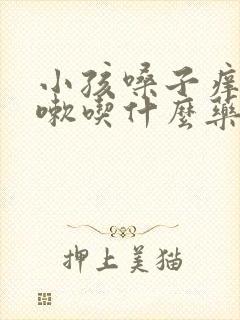 小孩嗓子痒
嗽喫什麼藥
押上美猫